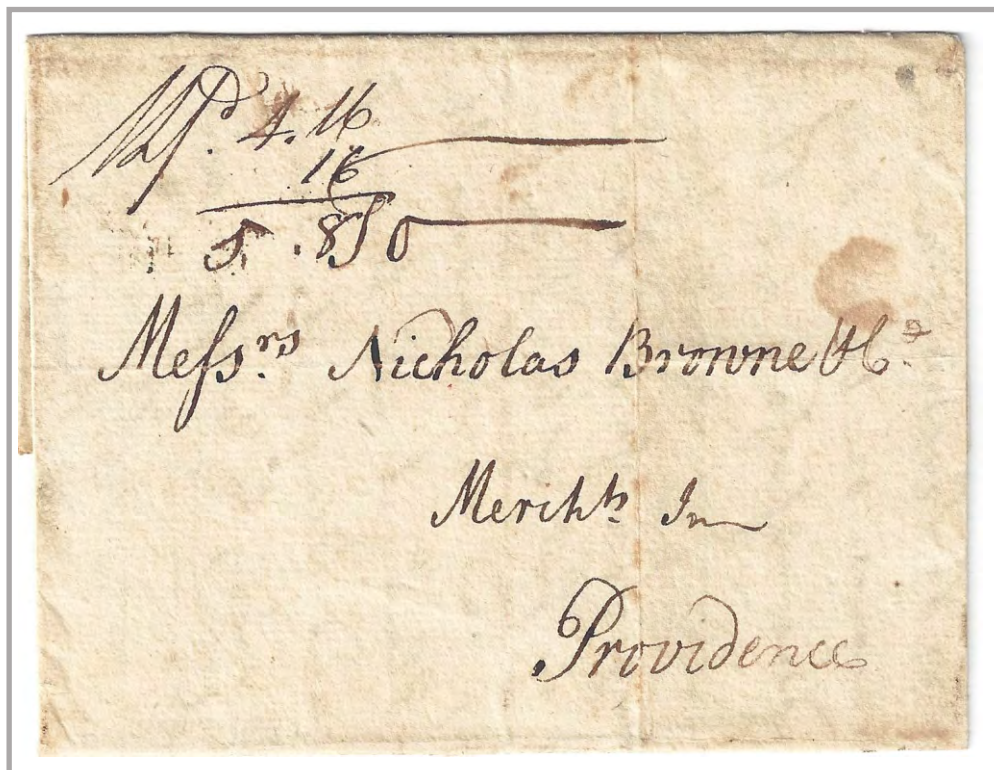 4.16
16
5.
Messrs. Nicholas Browne & Co.
Merchts. In
Providence